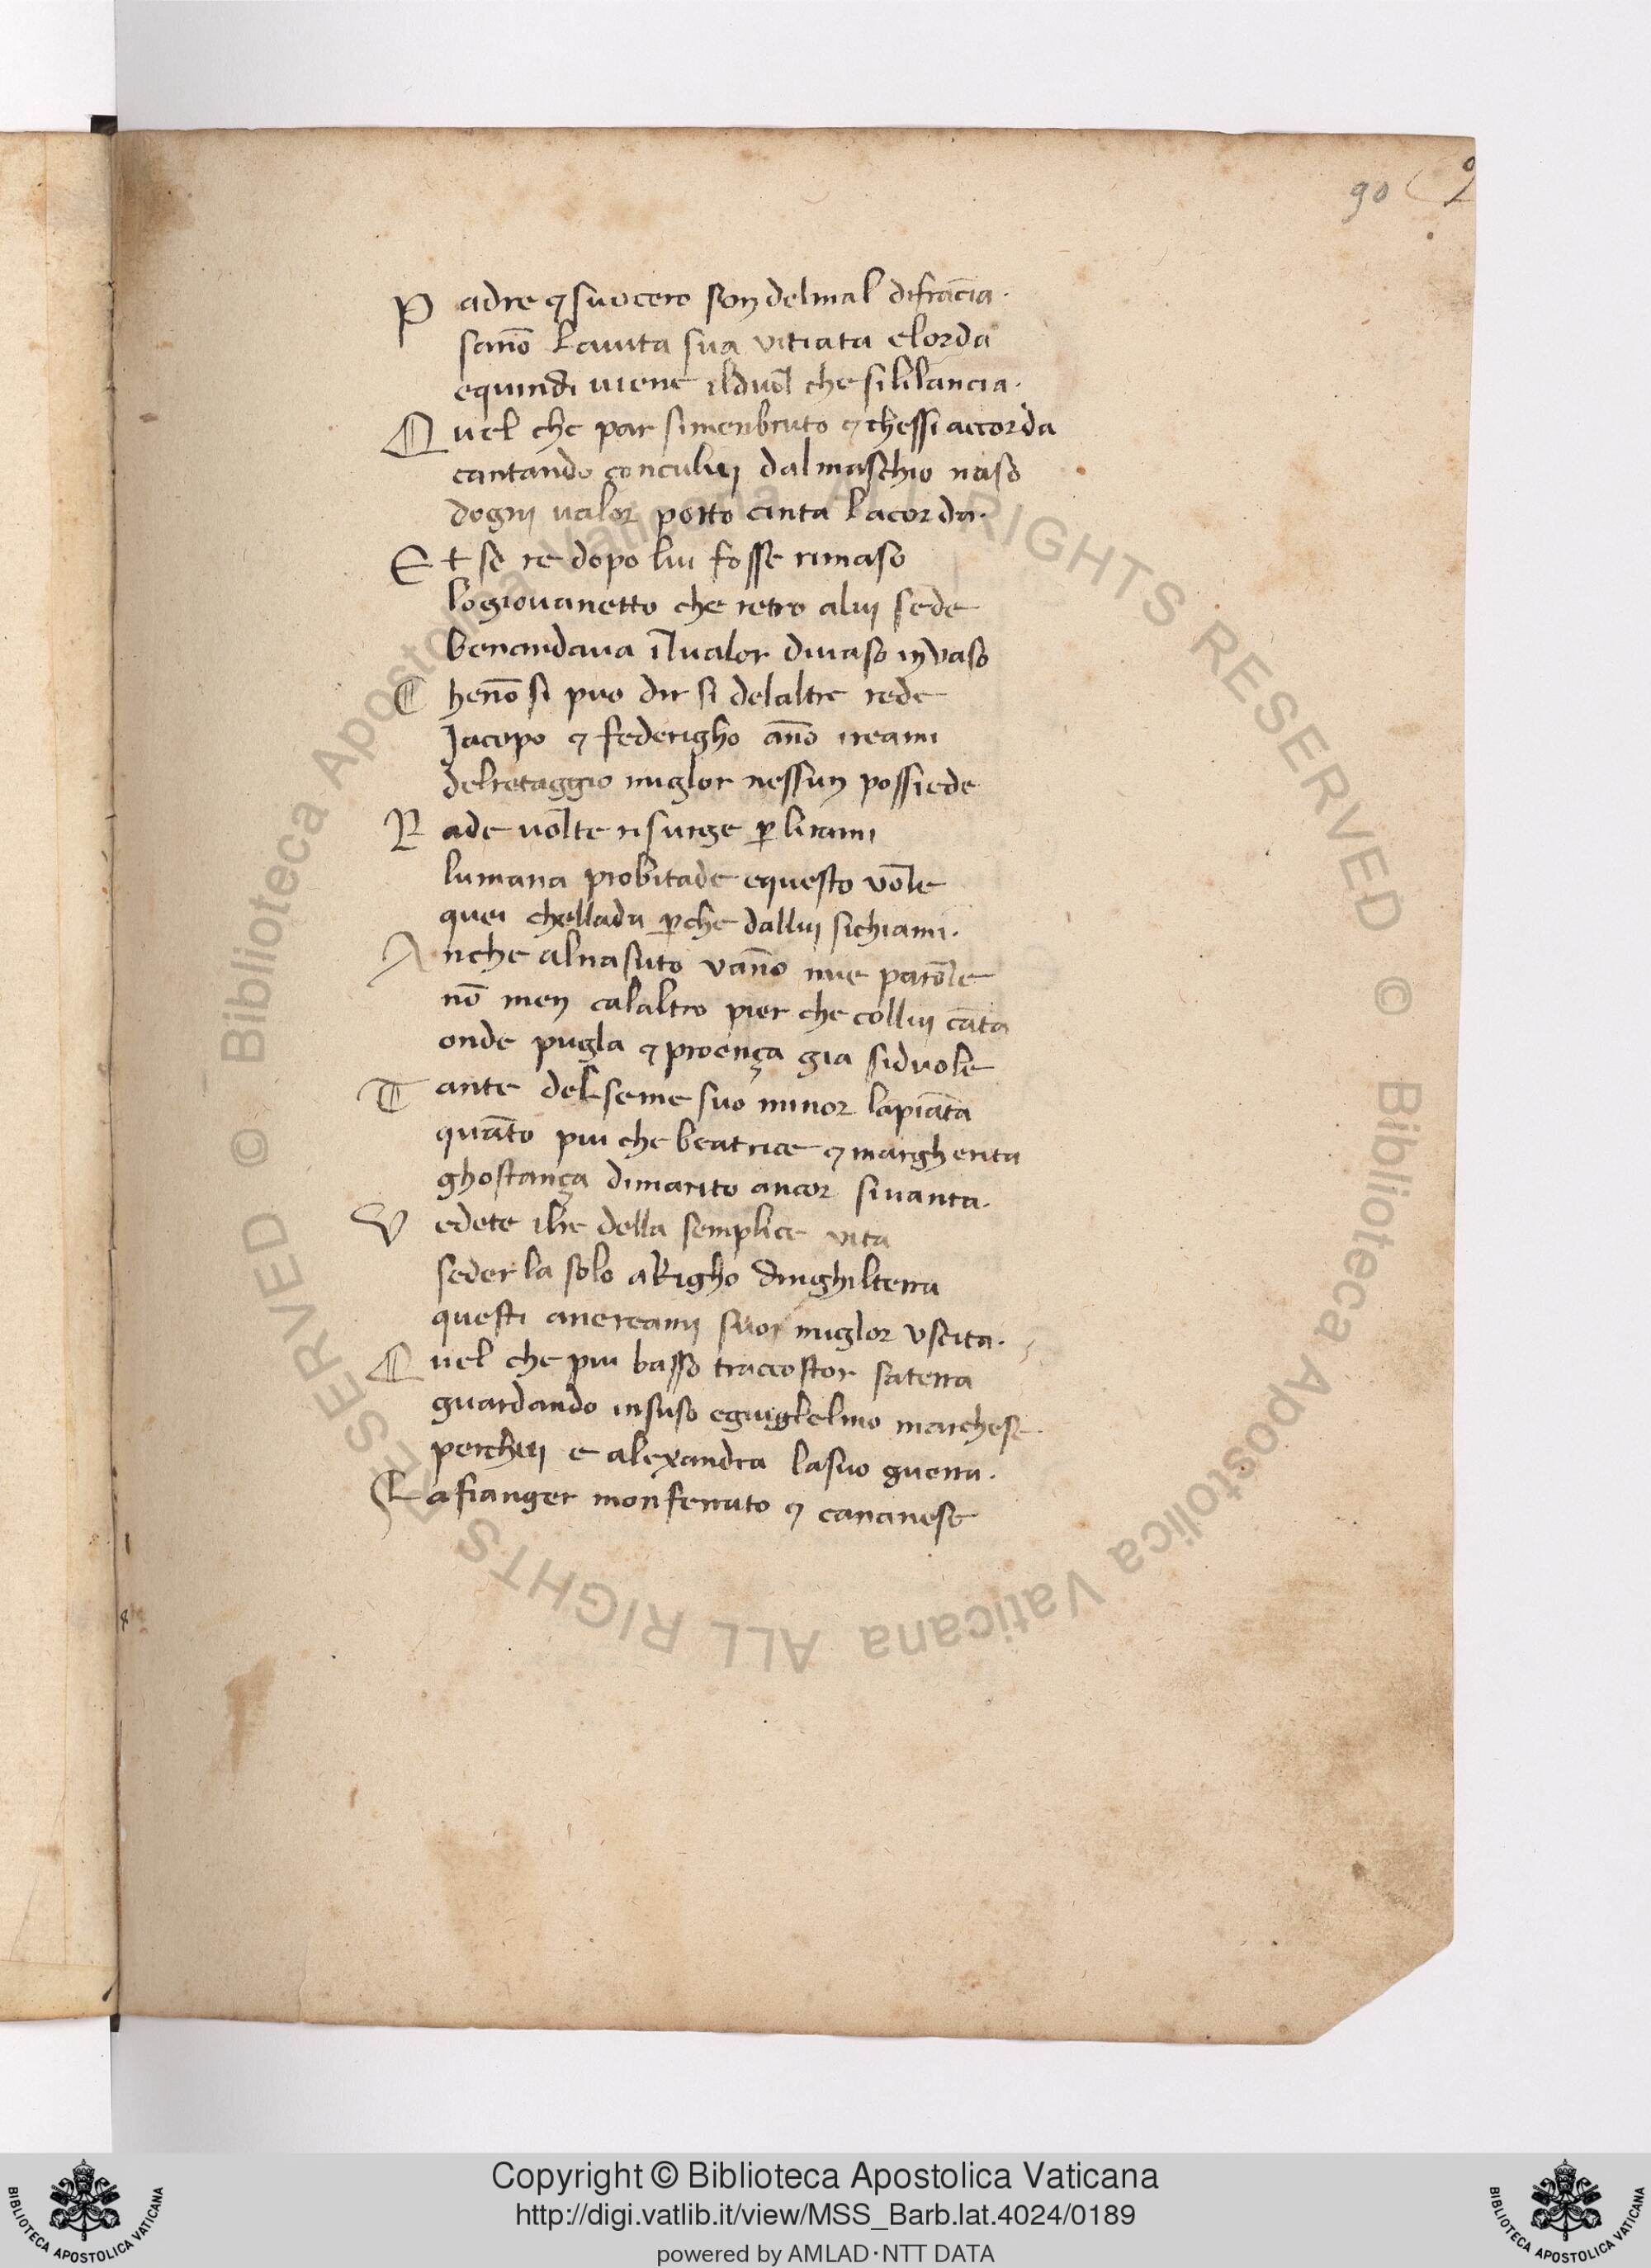 90
P adre ⁊ suocero son del mal difrācia·
sanō lauita sua vitiata elorda
equindi uiene ilduol che sililancia·
Q uel che par simenbruto ⁊ chessi accorda
cantando conculuj dalmaschio naso
dognj ualor porto cinta lacorda·
E t se re dopo lui fosse rimaso
logiouanetto che retro aluj sede
benandaua iluałor diuaso in vaso
C henō si puo dir si delaltre rede
Jacopo ⁊ federigho ānno ireami
delretaggio miglor nessun possiede
R ade uolte risurge ꝑ lirami
lumana probitade equesto vole
quei chellada ꝑche dalluj sichiami·
A nche alnasuto vānno mie parole
nō men calaltro pier che colluj cāta
onde pugla ⁊ proença gia siduole
T ante del seme suo minor lapiāta
quāto piu che beatrice ⁊ margherita
ghostança dimarito ancor siuanta·
V edete ilre della semplice vita
seder la solo arrigho dinghilterra
questi aneramj suoi miglor vscita·
Q uel che piu basso traccostor saterra
guardando insuso eguiglelmo marchese·
perchuj e alexandra lasuo guerra·
L afianger monferrato ⁊ cananese
Copyright © Biblioteca Apostolica Vaticana
http://digi.vatlib.it/view/MSS_Barb.lat.4024/0189
powered by AMLAD·NTT DATA
BIBLIOTECA APOSTOLICA VATICANA
BIBLIOTECA APOSTOLICA VATICANA
© Biblioteca Apostolica Vaticana ALL RIGHTS RESERVED © Biblioteca Apostolica Vaticana ALL RIGHTS RESERVED